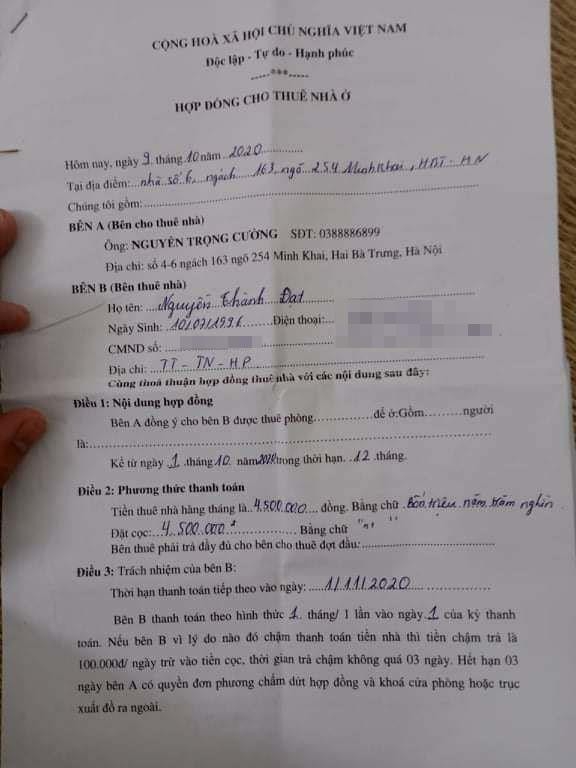 CỘNG HOÀ XÃ HỘI CHỦ NGHĨA VIỆT NAM
Độc lập - Tự do - Hạnh phúc
-----***-----
HỢP ĐỒNG CHO THUÊ NHÀ Ở
Hôm nay, ngày 9 tháng 10 năm 2020
Tại địa điểm: nhà số 6, ngách 163, ngõ 254 Minh Khai, HBT - HN
Chúng tôi gồm:
BÊN A (Bên cho thuê nhà)
Ông: NGUYỄN TRỌNG CƯỜNG SĐT: 0388886899
Địa chỉ: số 4-6 ngách 163 ngõ 254 Minh Khai, Hai Bà Trưng, Hà Nội
BÊN B (Bên thuê nhà)
Họ tên: Nguyễn Thành Đạt
Ngày Sinh: 10/07/1996 Điện thoại:
CMND số:
Địa chỉ: TT - TN - HP
Cùng thoả thuận hợp đồng thuê nhà với các nội dung sau đây:
Điều 1: Nội dung hợp đồng
Bên A đồng ý cho bên B được thuê phòng............để ở:Gồm.........người
là:
Kể từ ngày 1 tháng 10 năm 2020 trong thời hạn 12 tháng.
Điều 2: Phương thức thanh toán
Tiền thuê nhà hàng tháng là 4.500.000 đồng. Bằng chữ bốn triệu năm trăm nghìn
Đặt cọc: 4.500.000đ Bằng chữ " nt "
Bên thuê phải trả đầy đủ cho bên cho thuê đợt đầu:
Điều 3: Trách nhiệm của bên B:
Thời hạn thanh toán tiếp theo vào ngày: 1/11/2020
Bên B thanh toán theo hình thức 1 tháng/ 1 lần vào ngày 1 của kỳ thanh
toán. Nếu bên B vì lý do nào đó chậm thanh toán tiền nhà thì tiền chậm trả là
100.000đ/ ngày trừ vào tiền cọc, thời gian trả chậm không quá 03 ngày. Hết hạn 03
ngày bên A có quyền đơn phương chấm dứt hợp đồng và khoá cửa phòng hoặc trục
xuất đồ ra ngoài.